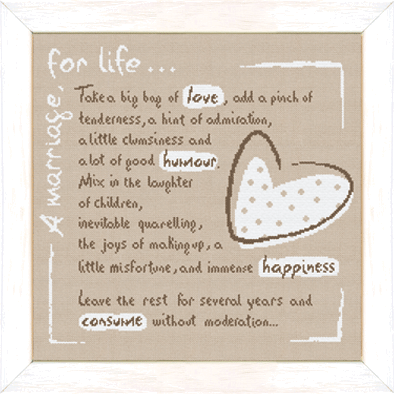 A marriage,
for life...
Take a big bag of love, add a pinch of
tenderness, a hint of admiration,
a little clumsiness and
a lot of good humour.
Mix in the laughter
of children,
inevitable quarelling,
the joys of making up, a
little misfortune, and immense happiness
Leave the rest for several years and
consume without moderation...